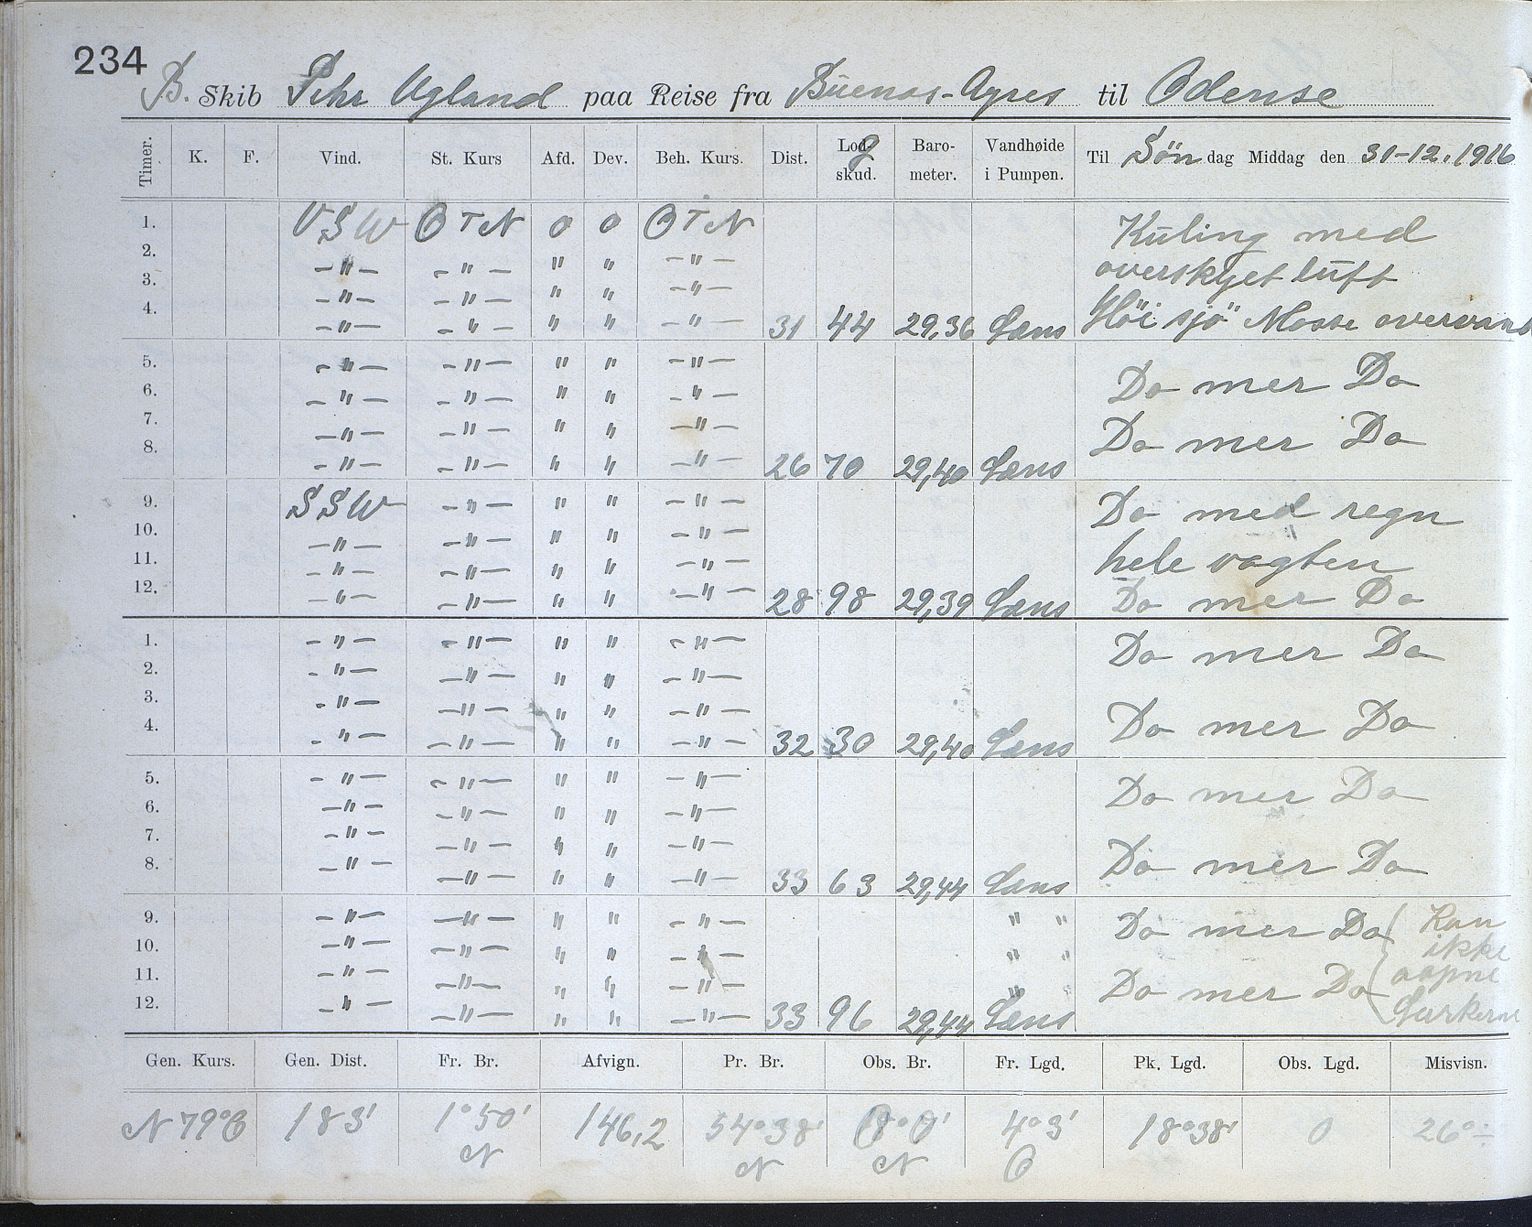 234
B. Skib Pehr Ugland paa Reise fra Buenos-Ayres til Odense
Timer. K. F. Vind. St. Kurs Afd. Dev. Beh. Kurs. Dist. Lodskud. g Barometer. Vandhøide i Pumpen. Til Søndag Middag den 31-12.1916
1. VSW OTN 0 0 OTN Küling med
2. -"- -"- " " -"- overskyet lüft
3. -"- -"- " " -"-
4. -"- -"- " " -"- 31 44 29,36 Læns Höi sjö Masse overvand
5. -"- -"- " " -"- Do mer Do
6. -"- -"- " " -"-
7. -"- -"- " " -"- Do mer Do
8. -"- -"- " " -"- 26 70 29,40 Læns
9. SSW -"- " " -"- Do med regn
10. -"- -"- " " -"- hele vagten
11. -"- -"- " " -"-
12. -"- -"- " " -"- 28 98 29,39 Læns Do mer Do
1. -"- -"- " " -"- Do mer Do
2. -"- -"- " " -"-
3. -"- -"- " " -"- Do mer Do
4. -"- -"- " " -"- 32 30 29,40 Læns
5. -"- -"- " " -"- Do mer Do
6. -"- -"- " " -"-
7. -"- -"- " " -"- Do mer Do
8. -"- -"- " " -"- 33 63 29,44 Læns
9. -"- -"- " " -"- " " Do mer Do Kan
10. -"- -"- " " -"- " " ikke
11. -"- -"- " " -"- " " Do mer Do aapne
12. -"- -"- " " -"- 33 96 29,44 Læns Lurkerne
Gen. Kurs. Gen. Dist. Fr. Br. Afvign. Pr. Br. Obs. Br. Fr. Lgd. Pk. Lgd. Obs. Lgd. Misvisn.
N 79° O 183' 1°50' N 146,2 54°38' N 0°0' N 4°3' O 18°38' 0 26°÷